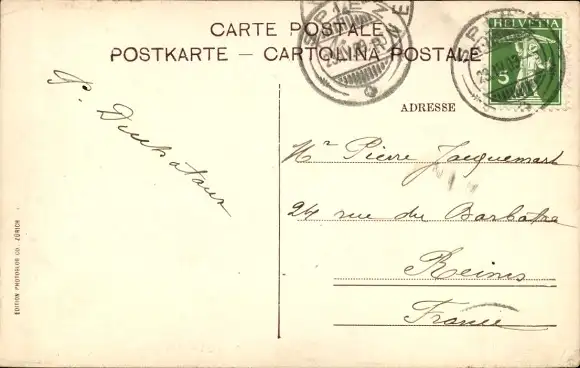 CARTE POSTALE
POSTKARTE – CARTOLINA POSTALE
SPIEZ
HELVETIA
5
ADRESSE
P.
Mr Pierre Jacquemart
24 rue du Barbatre
Reims
France
EDITION PHOTOGLOB CO., ZÜRICH